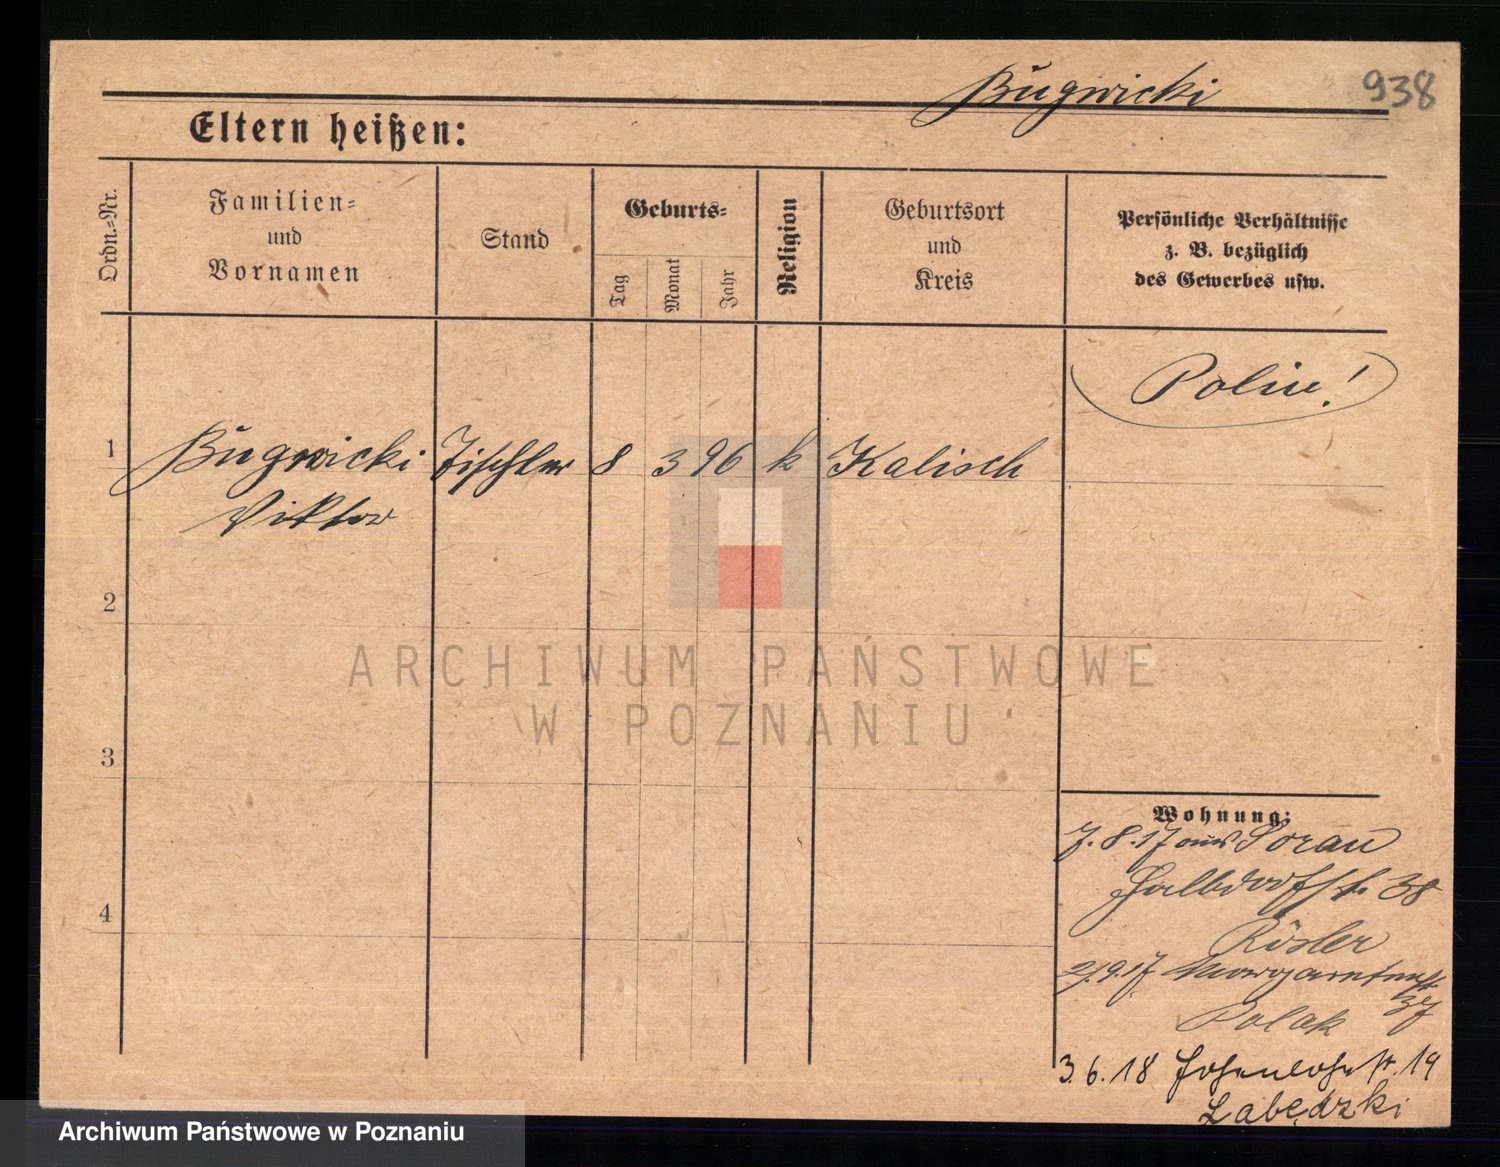 Bugwicki
938
Eltern heißen:
Ordn.-Nr.
Familien-
und
Vornamen
Stand
Geburts-
Tag
Monat
Jahr
Religion
Geburtsort
und
Kreis
Persönliche Verhältnisse
z. B. bezüglich
des Gewerbes usw.
1
Bugwicki Tischler 8 3 96 k Kalisch
Viktor
2
3
4
Wohnung:
7.8.17 aus Sorau
Halbdorfst. 38
Rösler
2/9.17 Margaretenst
37
Polak
3.6.18 Hohenlohest. 19
Labędzki
ARCHIWUM PAŃSTWOWE
W POZNANIU
Archiwum Państwowe w Poznaniu